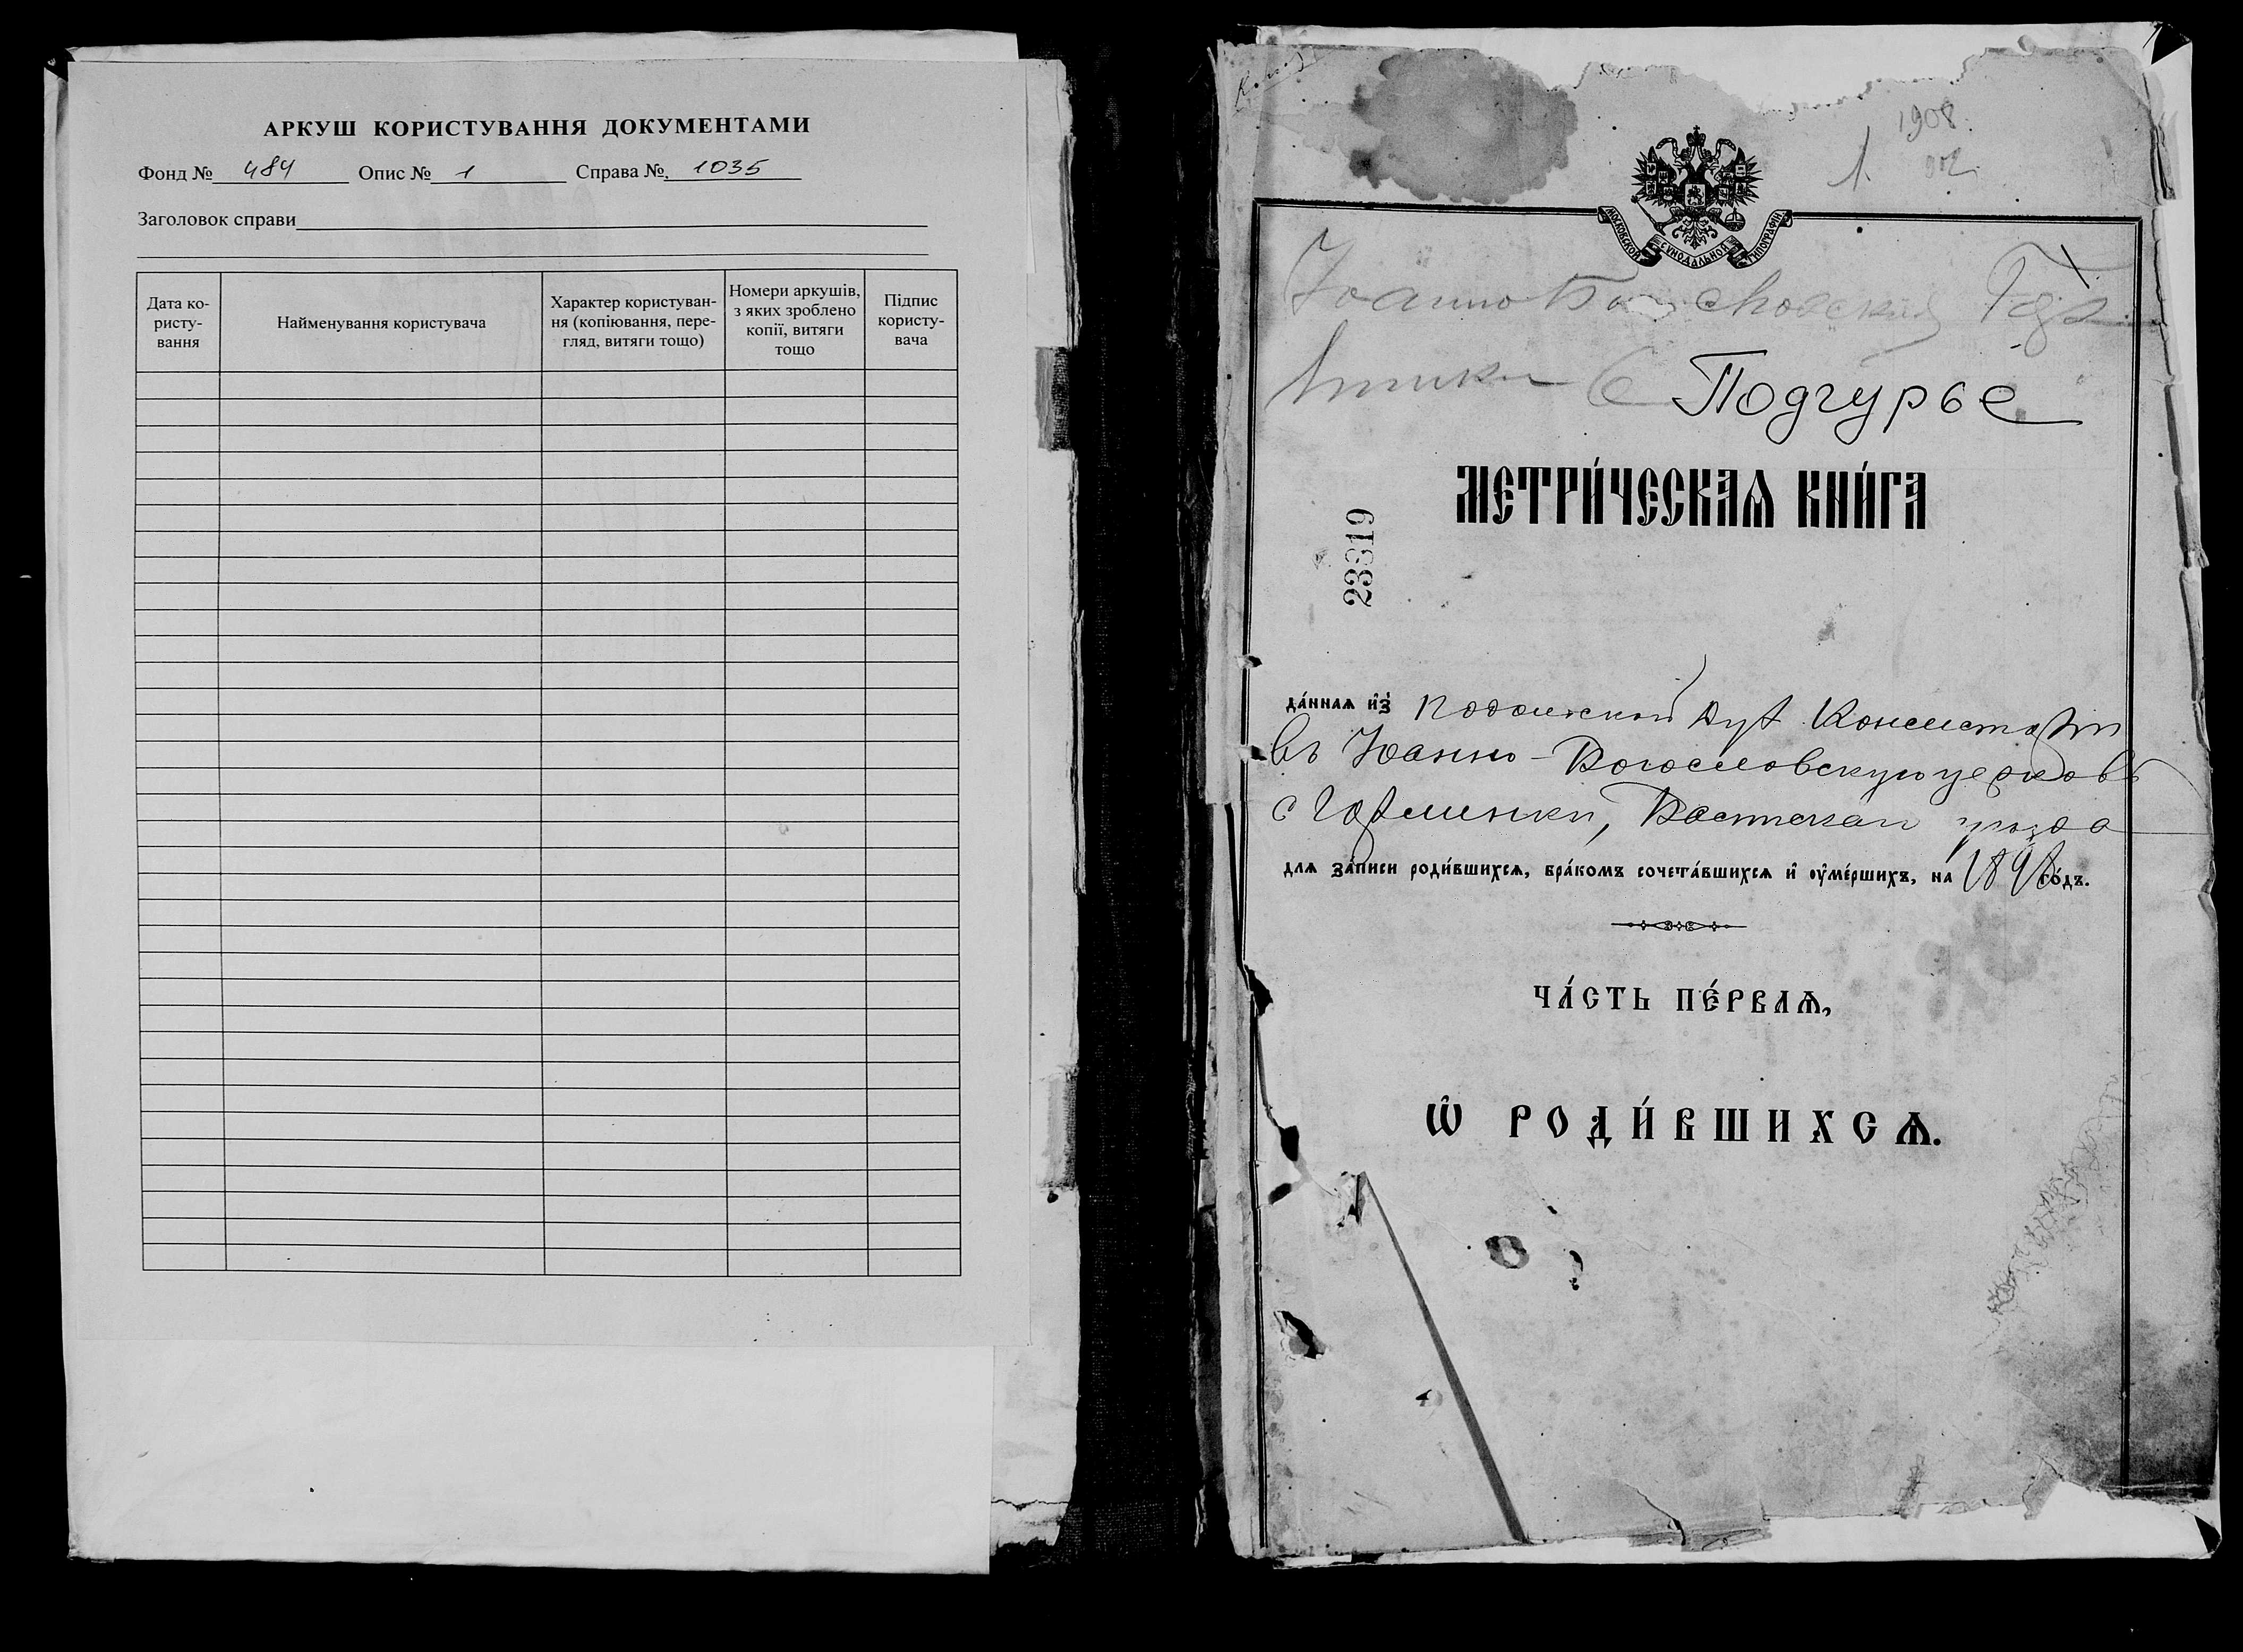 АРКУШ КОРИСТУВАННЯ ДОКУМЕНТАМИ
Фонд № 484 Опис № 1 Справа № 1035
Заголовок справи
Дата ко-
ристу-
вання
Найменування користувача
Характер користуван-
ня (копіювання, пере-
гляд, витяги тощо)
Номери аркушів,
з яких зроблено
копії, витяги
тощо
Підпис
користу-
вача
1908
1
МОСКОВСКОЙ СѴНОДАЛЬНОЙ ТИПОГРАФІИ
С Подгурье
МЕТРИ́ЧЕСКАѦ КНИ́ГА
23319
да́ннаѧ и҆з̾ Подольской Дух Консисторіи
въ Іоанно-Богословскую церковь
с
для за́писи роди́вшихсѧ, бра́комъ сочета́вшихсѧ и҆ оу҆ме́ршихъ, на 1898 го́дъ.
ЧА́СТЬ ПЕ́РВАѦ,
Ѡ҆ РОДИ́ВШИХСѦ.